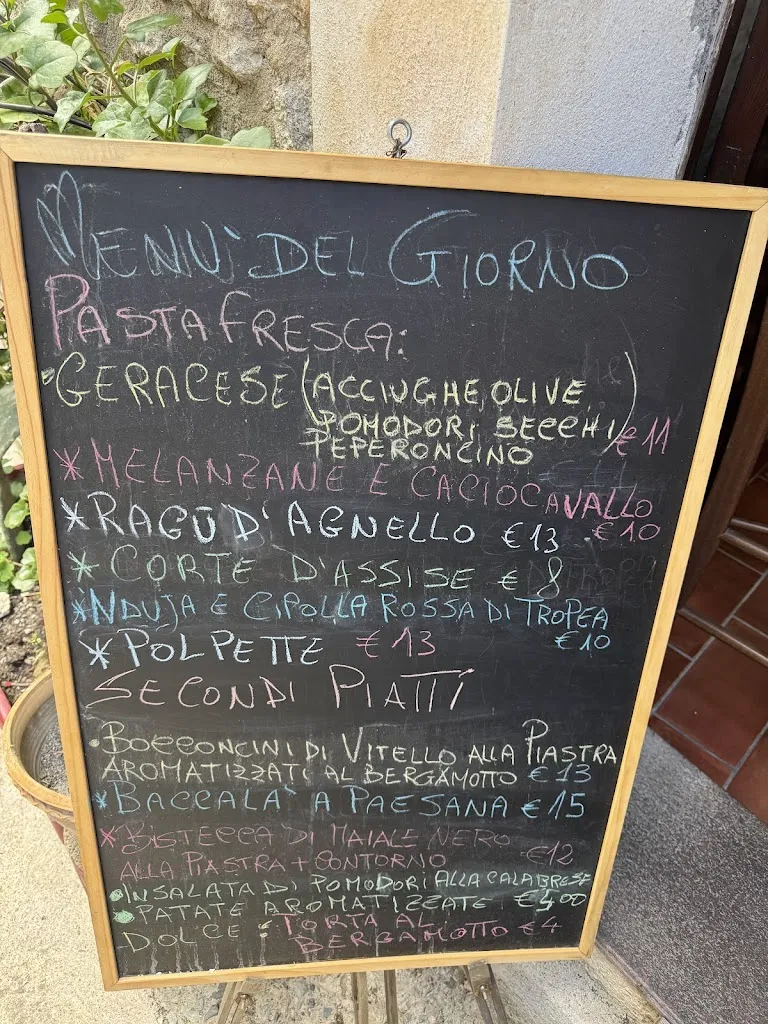 MENU' DEL GIORNO
PASTA FRESCA:
• GERACESE (ACCIUGHE, OLIVE
POMODORI SECCHI
PEPERONCINO) € 11
* MELANZANE E CACIOCAVALLO
€ 10
* RAGÙ D'AGNELLO € 13
* CORTE D'ASSISE € 8
* NDUJA E CIPOLLA ROSSA DI TROPEA
€ 10
* POLPETTE € 13
SECONDI PIATTI
• BOCCONCINI DI VITELLO ALLA PIASTRA
AROMATIZZATI AL BERGAMOTTO € 13
* BACCALA' A PAESANA € 15
* BISTECCA DI MAIALE NERO
ALLA PIASTRA + CONTORNO € 12
• INSALATA DI POMODORI ALLA CALABRESE
• PATATE AROMATIZZATE € 5,00
DOLCE: TORTA AL
BERGAMOTTO € 4